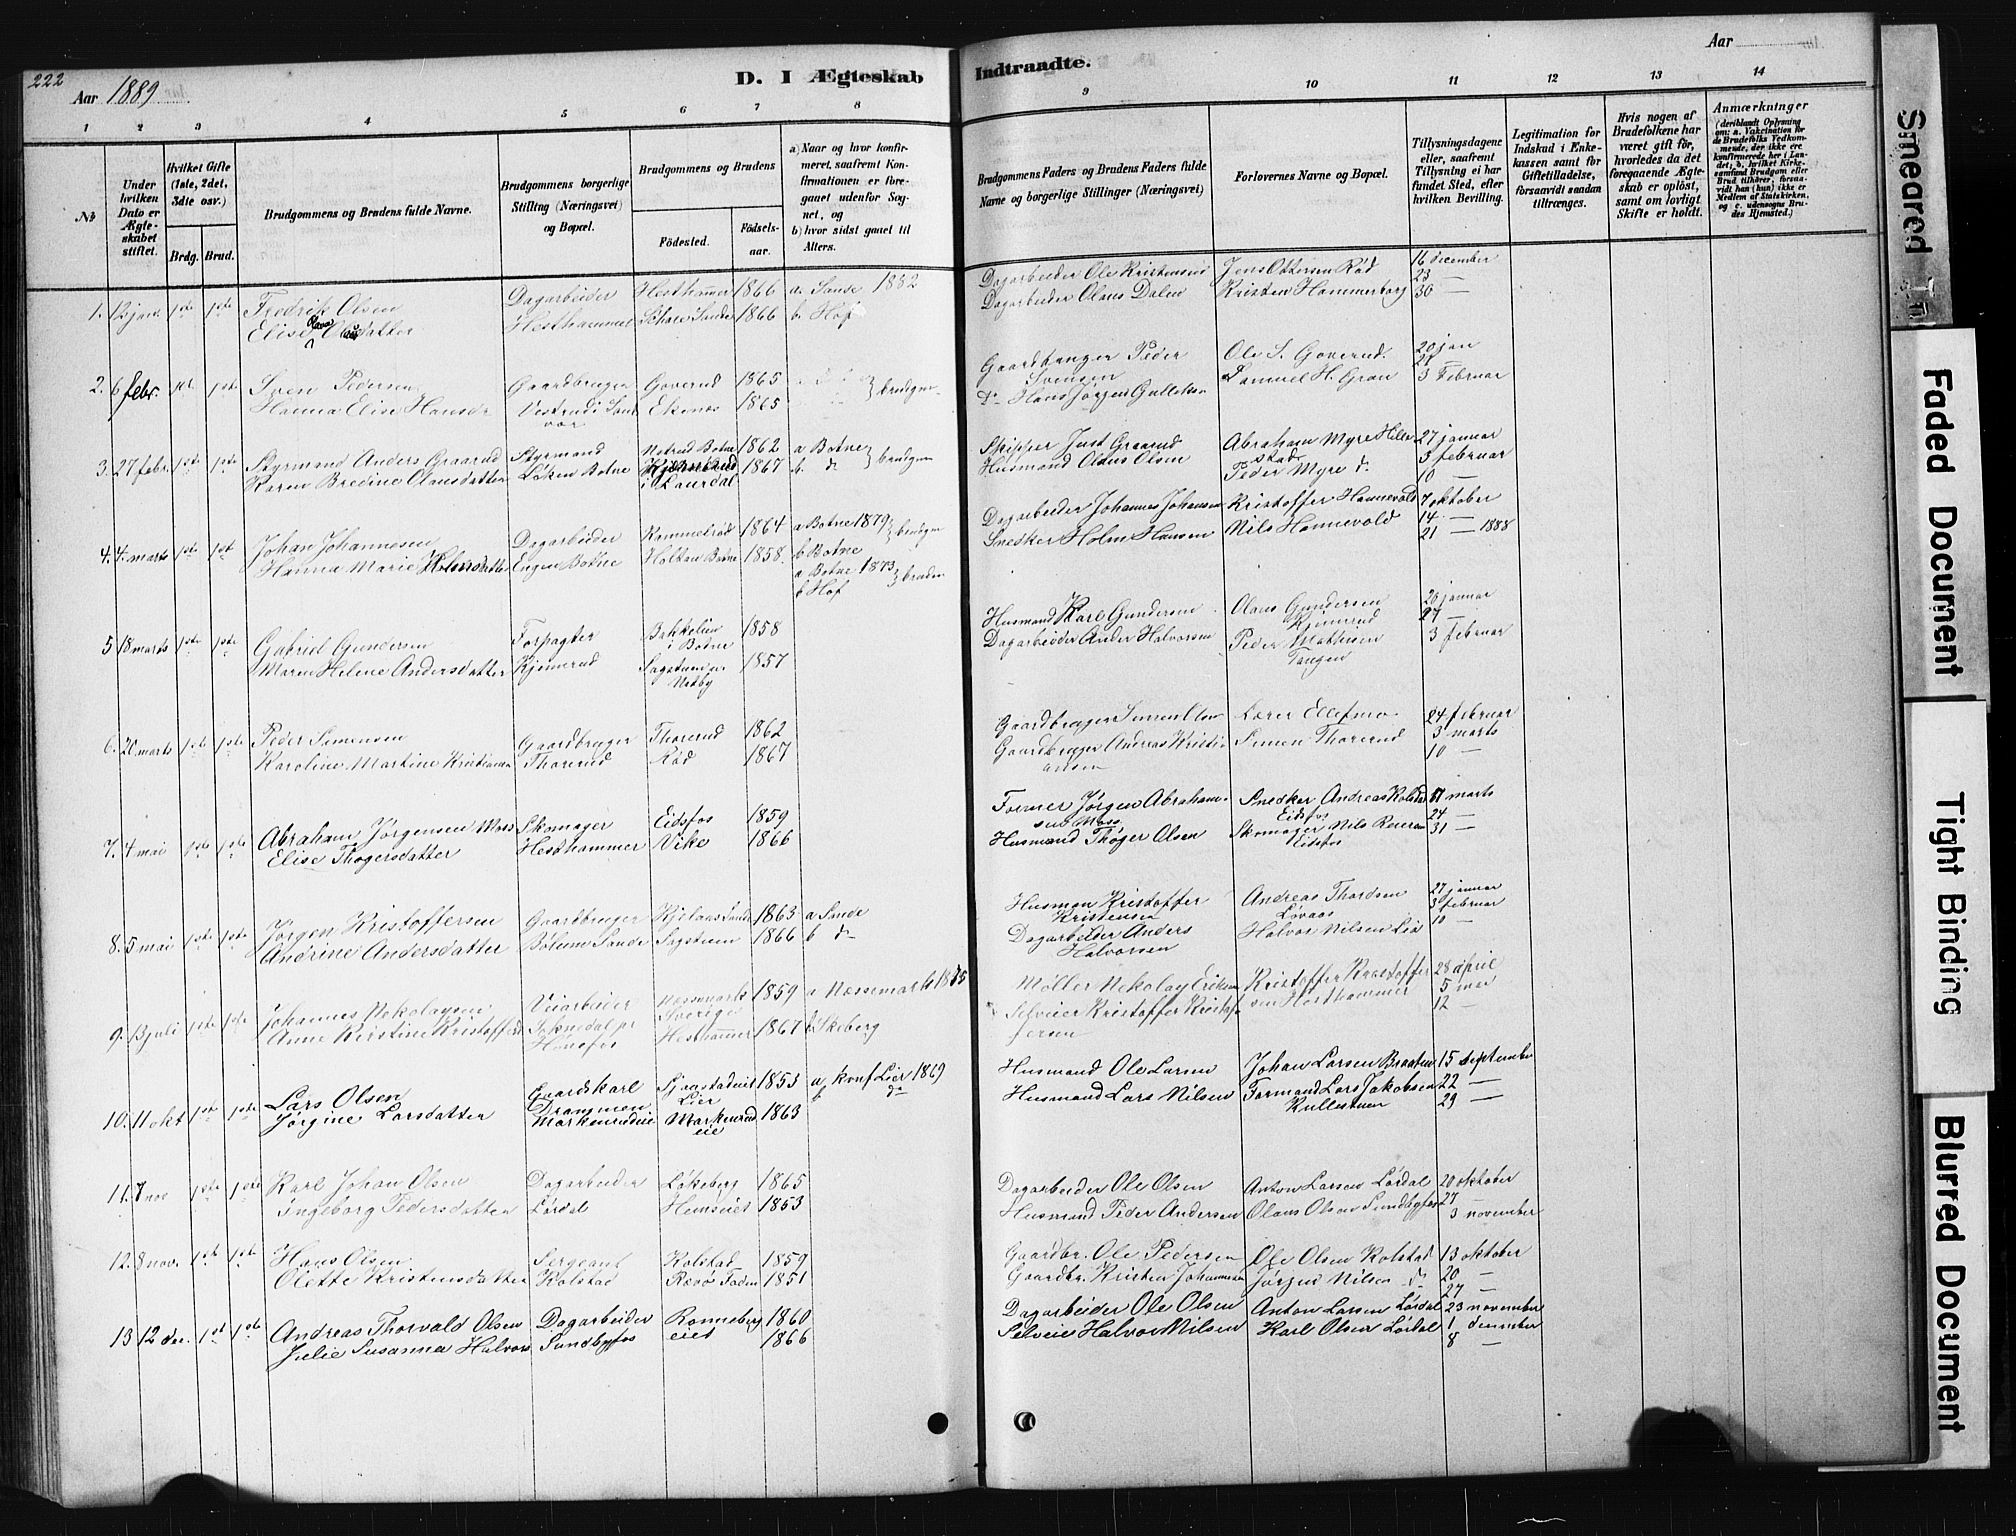 222
Aar 1889
D. I Ægteskab
Indtraadte.
Aar
1 2 3 4 5 6 7 8
9 10 11 12 13 14
№
Under hvilken Dato er Ægteskabet stiftet.
Hvilket Gifte (1ste, 2det, 3dte osv.)
Brdg. Brud.
Brudgommens og Brudens fulde Navne.
Brudgommens borgerlige Stilling (Næringsvei) og Bopæl.
Brudgommens og Brudens
Födested.
Födselsaar.
a) Naar og hvor konfirmeret, saafremt Konfirmationen er foregaaet udenfor Sognet, og
b) hvor sidst gaaet til Alters.
Brudgommens Faders og Brudens Faders fulde Navne og borgerlige Stillinger (Næringsvei)
Forlovernes Navne og Bopæl.
Tillysningsdagene eller, saafremt Tillysning ei har fundet Sted, efter hvilken Bevilling.
Legitimation for Indskud i Enkekassen samt for Giftetilladelse, forsaavidt saadan tiltrænges.
Hvis nogen af Brudefolkene har været gift för, hvorledes da det foregaaende Ægteskab er oplöst, samt om lovligt Skifte er holdt.
Anmærkninger
(deriblandt Oplysning om: a. Vakcination for de Brudefolks Vedkommende, der ikke ere konfirmerede her i Landet; b. hvilket Kirkesamfund Brudgom eller Brud tilhörer, forsaavidt han (hun) ikke er Medlem af Statskirken, og c. udensogns Brudes Hjemsted.)
1. 12 jan. 1ste 1ste Fredrik Olsen Dagarbeider Hesthammer 1866 a. Sande 1882
Elise Olava Olsdatter Hesthammer Sande 1866 b. Hof
Dagarbeider Ole Kristensen Jens Ottersen Röd 16 december
Dagarbeider Olaus Dalen Kristen Hammerborg 23 —
30 —
2. 6 febr. 1ste Sven Pedersen Gaardbruger Goverud 1865
Hanna Elise Hansd. Vestrudi Ekenes 1865 brudgom
Gaardbruger Peder Ole S. Goverud. 20 jan
Svensen Samuel H. Gran 27
Do Hans Jørgen Gulliksen 3 Februar
3. 27 febr. 1ste 1ste Styrmand Anders Graarud Styrmand Botne 1862 a Botne
Karen Bredine Olausdatter Löken Botne i Laurdal 1867 b do brudgom
Skipper Just Graarud Abraham Myre Hillestad 27 januar
Husmand Olaus Olsen Peder Myre do 3 februar
10 —
4. 4. marts 1ste 1ste Johan Johannesen Dagarbeider 1864 a Botne 1879 brudgom
b Botne
Hanna Marie Holmsdatter Engen Botne Holtan Botne 1858. a Botne 1873 bruden
b Hof
Dagarbeider Johannes Johansen Kristoffer Hannevold 7 oktober
Snekker Holm Hansen Nils Hannevold 14 —
21 — 1888
5 18 marts 1ste 1ste Gabriel Gundersen Forpagter Bakkelien i Botne 1858
Maren Helene Andersdatter Kjennerud Sagstuen 1857
Husmand Karl Gundersen Olaus Gundersen 20 januar
Kjennerud 27 —
Dagarbeider Ander Halvorsen Peder Mathisen 3 februar
Tangen
6. 20 marts 1ste 1ste Peder Simensen Gaardbruger Thorerud 1862
Karoline Martine Kristiansen Thorerud Röd 1867
Gaardbruger Simen Olsen Lærer Ellefsmo 24 februar
Gaardbruger Andreas Kristiansen Simen Thorerud 3 marts
10 —
7. 4 mai 1ste 1ste Abraham Jørgensen Moss Skomager Eidsfos 1859
Elise Thøgersdatter Hesthammer Vike 1866
Former Jørgen Abrahamsen Moss Snedker Andreas Kolstad Eidsfos 17 marts
24 —
Husmand Thøger Olsen Skomager Nils Eidsfos 31 —
8. 5 mai 1ste 1ste Jørgen Kristoffersen Gaardbruger Sande 1863 a Sande
Andrine Andersdatter Bölum Sande Sagstuen 1866 b do
Husman Kristoffer Kristensen Andreas Thordsen Lövaas 27 januar
3 februar
Dagarbeider Anders Halvorsen Halvor Nilsen Lia 10 —
9. 13 juli 1ste 1ste Johannes Nikolaysen Veiarbeider Næssemark Sverige 1859 a Næssemark 1875
Anne Kristine Kristoffersd Hönefos Hesthammer 1867 b Skeberg
Møller Nikolay Eriksen Kristoffer Kristoffersen Hesthammer 28 april
Selveier Kristoffer Kristoffersen 5 mai
12 —
10. 11 okt 1ste 1ste Lars Olsen Gaardskarl Drammen Lier 1853 a konf Lier 1869
b do
Jørgine Larsdatter Markenrudeie Markenrudeie 1863
Husmand Ole Larsen Johan Larsen Braaten 15 september
Husmand Lars Nilsen Formand Lars Jakobsen 22 —
29 —
11. 7 nov 1ste 1ste Karl Johan Olsen Dagarbeider Løkeberg 1865
Ingeborg Pedersdatter Lørdal Hemseiet 1853
Dagarbeider Ole Olsen Anton Larsen Lørdal 20 oktober
Husmand Peder Andersen Olaus Olsen Sundbyfos 27 —
3 november
12. 8 nov. 1ste 1ste Hans Olsen Sergeant Kolstad 1859
Olette Kristensdatter Kolstad 1851
Gaardbr. Ole Pedersen Ole Olsen Kolstad 13 oktober
Gaardbr. Kristen Johannesen Jørgen Nilsen do 20 —
27 —
13 12 dec. 1ste 1ste Andreas Thorvald Olsen Dagarbeider Ronneberg 1860
Julie Susanna Halvors Sundbyfos eiet 1866
Dagarbeider Ole Olsen Anton Larsen Lørdal 23 november
Selveier Halvor Nilsen Karl Olsen Lørdal 1 december
8 —
Smeared
Faded Document
Tight Binding
Blurred Document